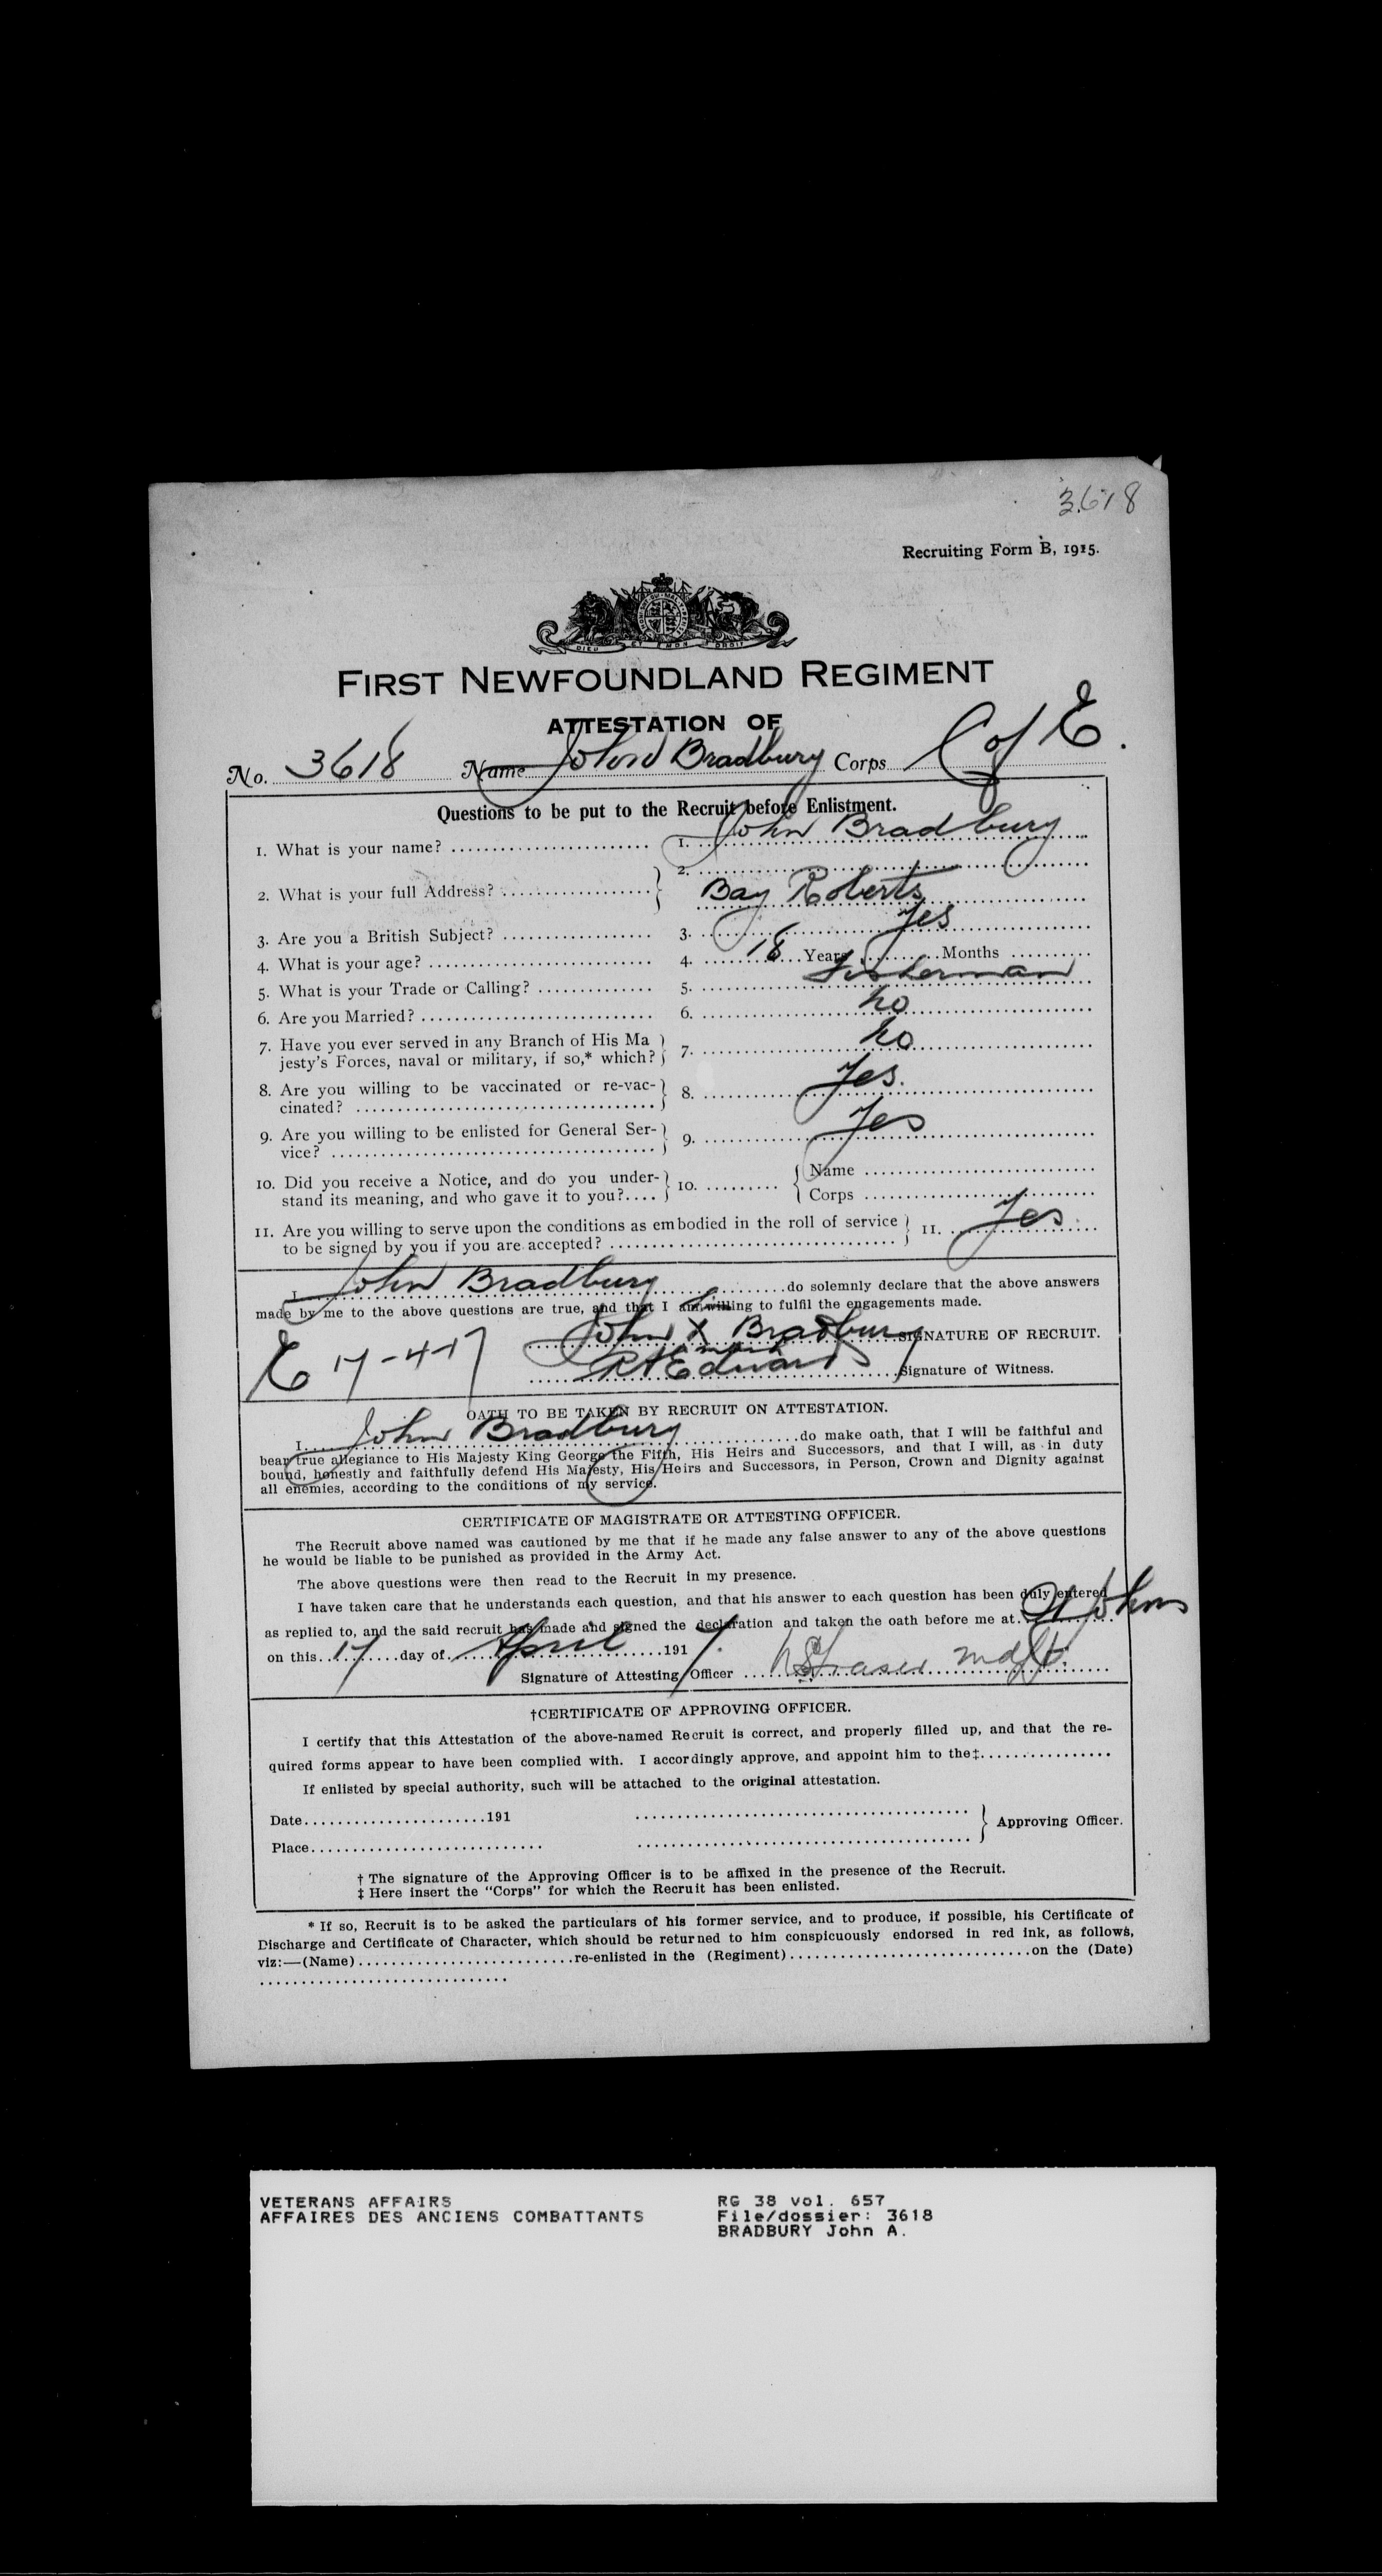 3618
Recruiting Form B, 1915.
DIEU ET MON DROIT
FIRST NEWFOUNDLAND REGIMENT
ATTESTATION OF
No. 3618 Name John Bradbury Corps C of E.
Questions to be put to the Recruit before Enlistment.
1. What is your name? 1. John Bradbury
2. What is your full Address? 2. Bay Roberts
3. Are you a British Subject? 3. Yes
4. What is your age? 4. 18 Years Months
5. What is your Trade or Calling? 5. Fisherman
6. Are you Married? 6. No
7. Have you ever served in any Branch of His Ma
jesty's Forces, naval or military, if so,* which? 7. No
8. Are you willing to be vaccinated or re-vac-
cinated? 8. Yes.
9. Are you willing to be enlisted for General Ser-
vice? 9. Yes
10. Did you receive a Notice, and do you under-
stand its meaning, and who gave it to you?.... 10. Name
Corps
11. Are you willing to serve upon the conditions as embodied in the roll of service
to be signed by you if you are accepted? 11. Yes
I John Bradbury do solemnly declare that the above answers
made by me to the above questions are true, and that I am willing to fulfil the engagements made.
John X Bradbury SIGNATURE OF RECRUIT.
mark
E 17-4-17 R H Edwards Signature of Witness.
OATH TO BE TAKEN BY RECRUIT ON ATTESTATION.
I John Bradbury do make oath, that I will be faithful and
bear true allegiance to His Majesty King George the Fifth, His Heirs and Successors, and that I will, as in duty
bound, honestly and faithfully defend His Majesty, His Heirs and Successors, in Person, Crown and Dignity against
all enemies, according to the conditions of my service.
CERTIFICATE OF MAGISTRATE OR ATTESTING OFFICER.
The Recruit above named was cautioned by me that if he made any false answer to any of the above questions
he would be liable to be punished as provided in the Army Act.
The above questions were then read to the Recruit in my presence.
I have taken care that he understands each question, and that his answer to each question has been duly entered
as replied to, and the said recruit has made and signed the declaration and taken the oath before me at St Johns
on this 17 day of April 1917.
Signature of Attesting Officer N S Fraser
†CERTIFICATE OF APPROVING OFFICER.
I certify that this Attestation of the above-named Recruit is correct, and properly filled up, and that the re-
quired forms appear to have been complied with. I accordingly approve, and appoint him to the‡
If enlisted by special authority, such will be attached to the original attestation.
Date 191
Place Approving Officer.
† The signature of the Approving Officer is to be affixed in the presence of the Recruit.
‡ Here insert the "Corps" for which the Recruit has been enlisted.
* If so, Recruit is to be asked the particulars of his former service, and to produce, if possible, his Certificate of
Discharge and Certificate of Character, which should be returned to him conspicuously endorsed in red ink, as follows,
viz:—(Name) re-enlisted in the (Regiment) on the (Date)
VETERANS AFFAIRS RG 38 vol. 657
AFFAIRES DES ANCIENS COMBATTANTS File/dossier: 3618
BRADBURY John A.